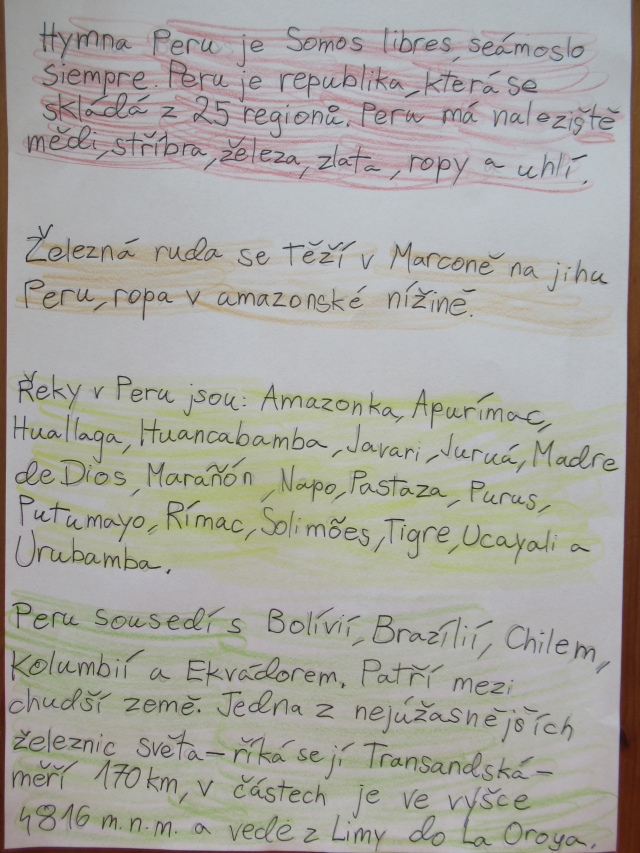 Hymna Peru je Somos libres, seámoslo
siempre. Peru je republika, která se
skládá z 25 regionů. Peru má naleziště
mědi, stříbra, železa, zlata, ropy a uhlí.
Železná ruda se těží v Marconě na jihu
Peru, ropa v amazonské nížině.
Řeky v Peru jsou: Amazonka, Apurímac,
Huallaga, Huancabamba, Javari, Juruá, Madre
de Dios, Marañón, Napo, Pastaza, Purus,
Putumayo, Rímac, Solimões, Tigre, Ucayali a
Urubamba.
Peru sousedí s Bolívií, Brazílií, Chilem,
Kolumbií a Ekvádorem. Patří mezi
chudší země. Jedna z nejúžasnějších
železnic světa – říká se jí Transandská –
měří 170 km, v částech je ve výšce
4816 m.n.m. a vede z Limy do La Oroya.